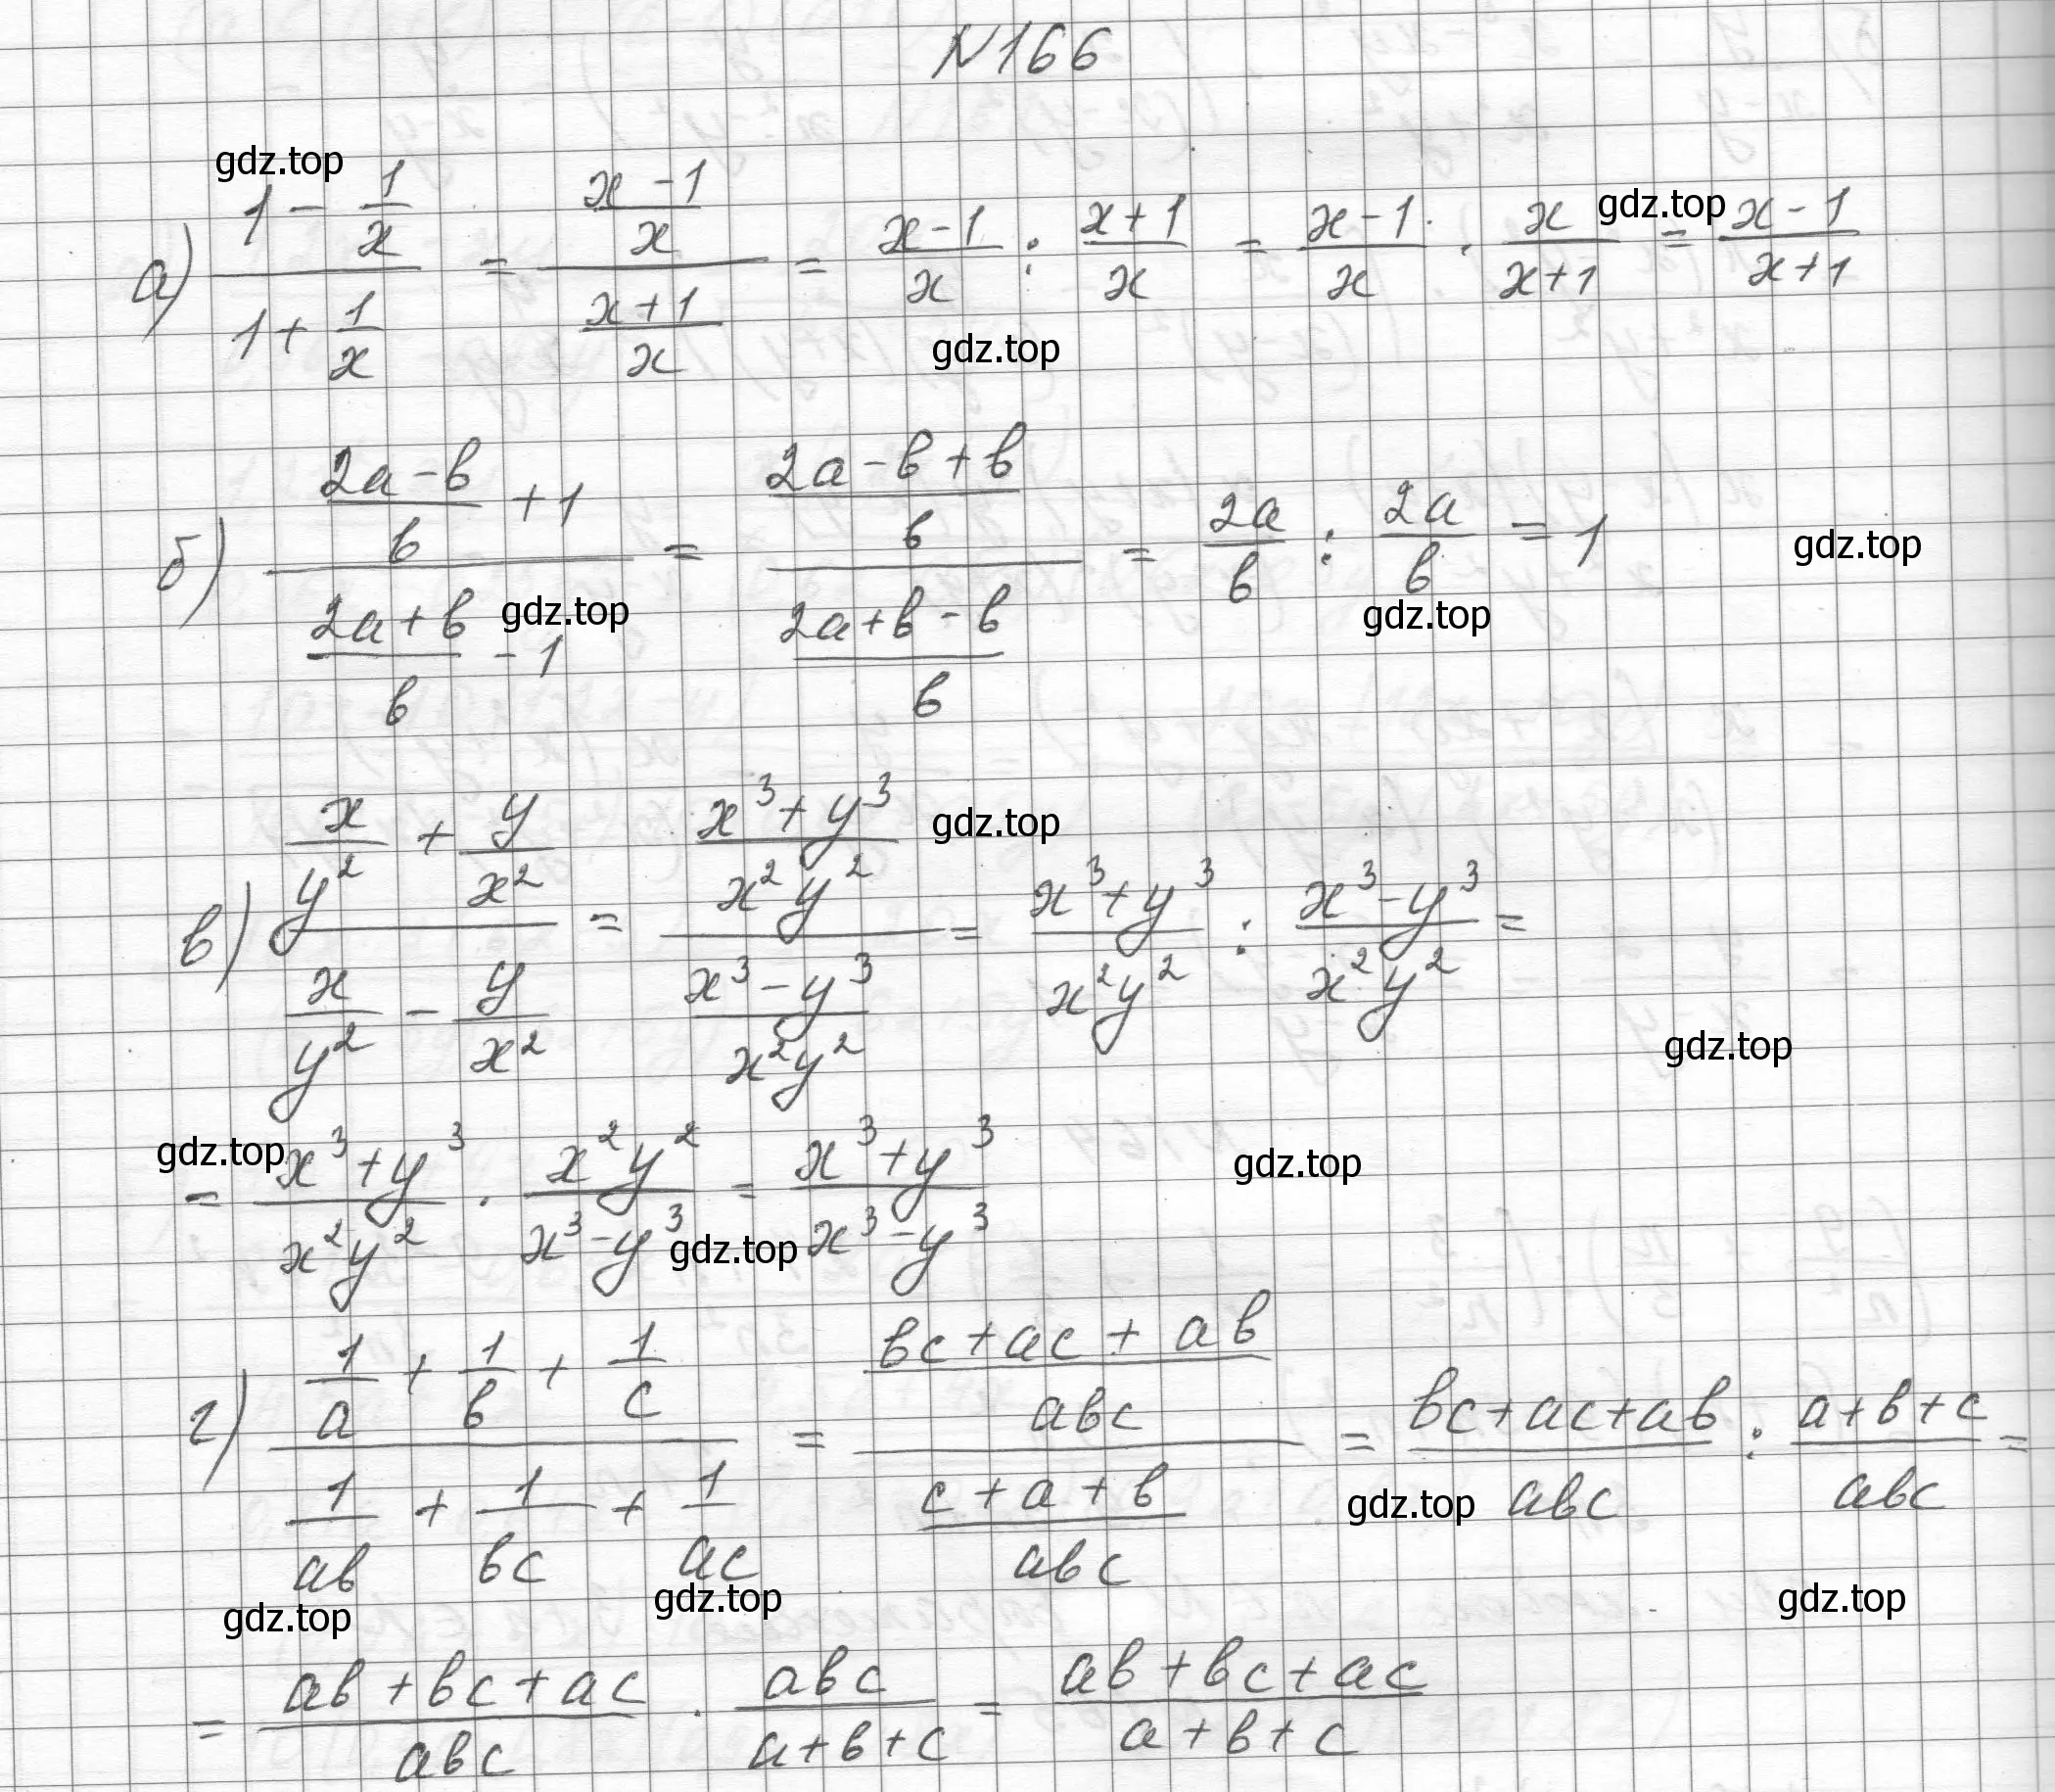 N166
gdz.top
а) (1 - 1/x)/(1 + 1/x) = ((x-1)/x)/((x+1)/x) = (x-1)/x : (x+1)/x = (x-1)/x · x/(x+1) = (x-1)/(x+1)
gdz.top
gdz.top
б) ((2a-b)/b + 1)/((2a+b)/b - 1) = ((2a-b+b)/b)/((2a+b-b)/b) = 2a/b : 2a/b = 1
gdz.top
gdz.top
gdz.top
в) (x/y² + y/x²)/(x/y² - y/x²) = ((x³+y³)/(x²y²))/((x³-y³)/(x²y²)) = (x³+y³)/(x²y²) : (x³-y³)/(x²y²) =
gdz.top
gdz.top
= (x³+y³)/(x²y²) · (x²y²)/(x³-y³) = (x³+y³)/(x³-y³)
gdz.top
gdz.top
gdz.top
г) (1/a + 1/b + 1/c)/(1/ab + 1/bc + 1/ac) = ((bc+ac+ab)/abc)/((c+a+b)/abc) = (bc+ac+ab)/abc : (a+b+c)/abc =
gdz.top
gdz.top
gdz.top
gdz.top
= (ab+bc+ac)/abc · abc/(a+b+c) = (ab+bc+ac)/(a+b+c)